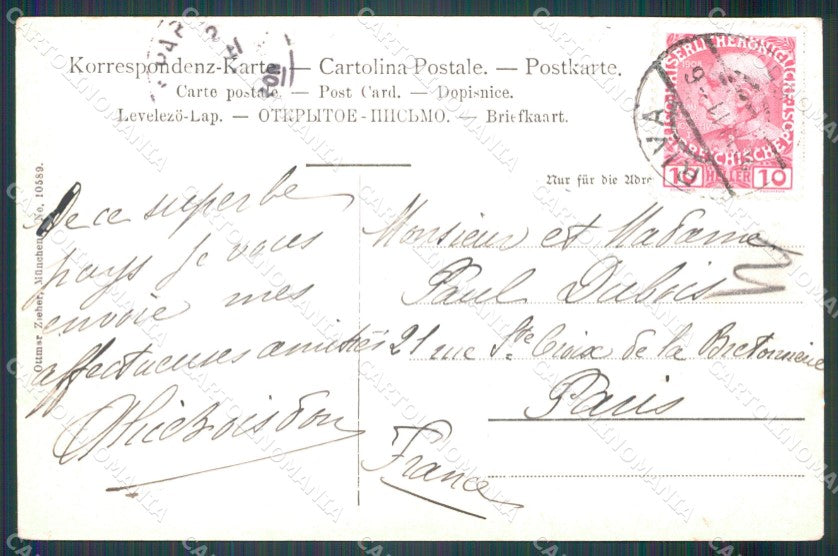 Korrespondenz-Karte. — Cartolina Postale. — Postkarte.
Carte postale. — Post Card. — Dopisnice.
Levelezö-Lap. — ОТКРЫТОЕ-ПИСЬМО. — Briefkaart.
Nur für die Adre
1908
10 HELLER 10
RIVA
Ottmar Zieher, München. No. 10589.
De ce superbe
pays je vous
envoie mes
affectueuses amitiés
Monsieur et Madame
Paul Dubois
21 rue Ste Croix de la Bretonnerie
Paris
France
CARTOLINOMANIA